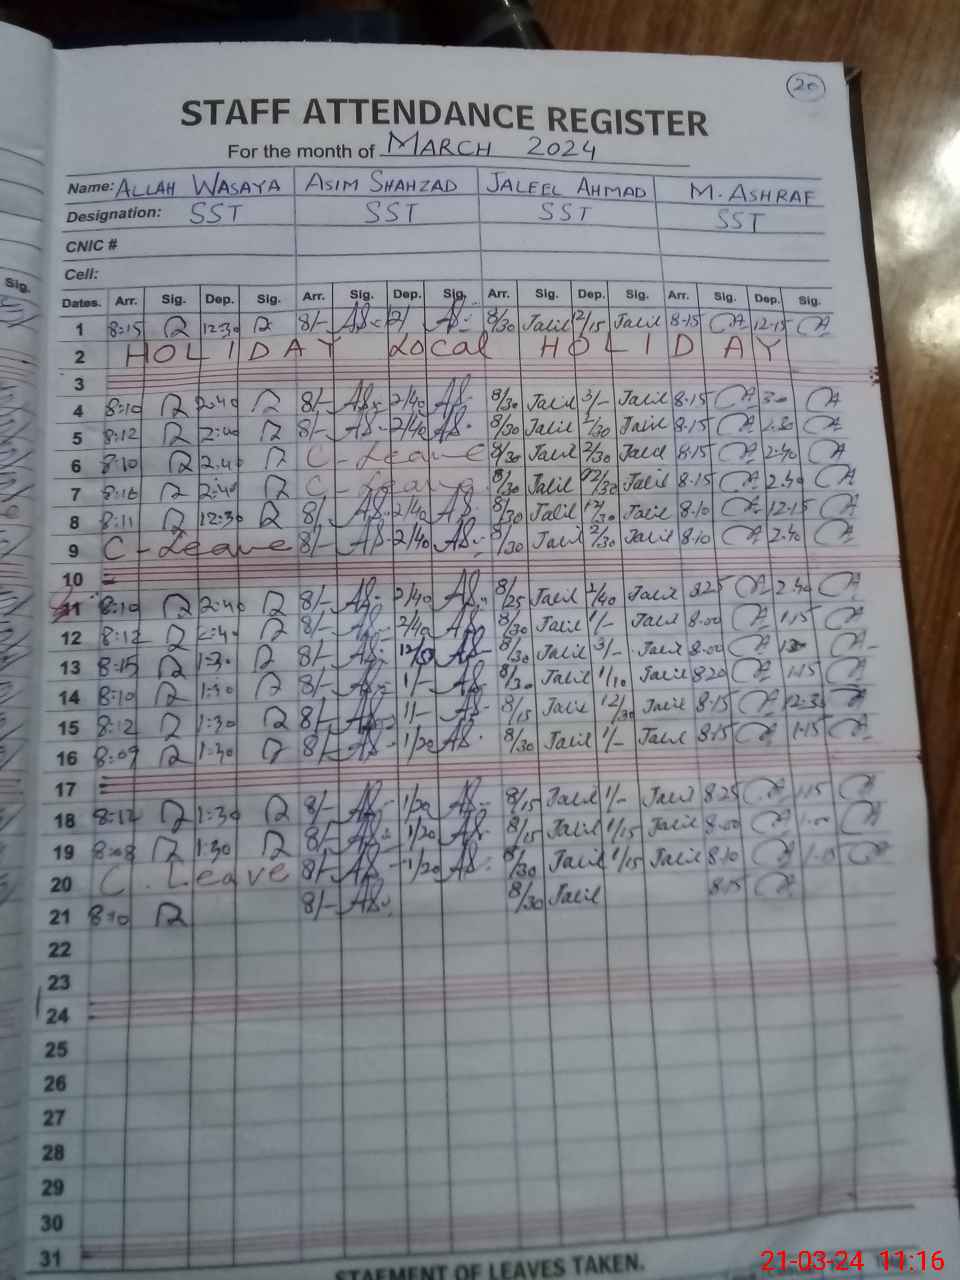 20
STAFF ATTENDANCE REGISTER
For the month of MARCH 2024
Name: ALLAH WASAYA ASIM SHAHZAD JALEEL AHMAD M. ASHRAF
Designation: SST SST SST SST
CNIC #
Cell:
Sig.
Dates. Arr. Sig. Dep. Sig. Arr. Sig. Dep. Sig. Arr. Sig. Dep. Sig. Arr. Sig. Dep. Sig.
1 8:15 12:30 8/- AS 12/ AS 8/30 Jalil 12/15 Jalil 8-15 12-15
2 HOLIDAY Local HOLIDAY
3
4 8:10 2:40 8/- AS 2/40 AS 8/30 Jalil 3/- Jalil 8.15
5 8:12 2:40 8/- AS 2/40 AS 8/30 Jalil Jalil 8.15 2.30
6 8:10 2:40 C-Leave 8/30 Jalil 2/30 Jalil 8.15 2.40
7 8:16 2:40 C-Leave 8/30 Jalil Jalil 8.15 2.40
8 8:11 12:30 8/- AS 2/40 AS 8/30 Jalil 12/30 Jalil 8.10 12-15
9 C-Leave 8/- AS 2/40 AS 8/30 Jalil 2/30 Jalil 8.10 2.40
10
11 8:10 2:40 8/- AS 2/40 AS 8/25 Jalil 2/40 Jalil 8.25 2.40
12 8:12 2:40 8/- AS 2/40 AS 8/30 Jalil 1/- Jalil 8.00 1.15
13 8:15 1:30 8/- AS AS 8/30 Jalil 3/- Jalil 8.00
14 8:10 1:30 8/- AS 1/- AS 8/30 Jalil 1/10 Jalil 8.20 1.15
15 8:12 1:30 8/- AS 1/- AS 8/15 Jalil 12/30 Jalil 8.15 12.30
16 8:09 1:30 8/- AS 1/20 AS 8/30 Jalil 1/- Jalil 8.15 1.15
17
18 8:12 1:30 8/- AS 1/20 AS 8/15 Jalil 1/- Jalil 8.25 1.15
19 8:08 1:30 8/- AS 1/20 AS 8/15 Jalil 1/15 Jalil 8.00 1.00
20 C. Leave 8/- AS 1/20 AS 8/30 Jalil 1/15 Jalil 8.10
21 8:10 8/- AS 8/30 Jalil 8.15
22
23
24
25
26
27
28
29
30
31
STAEMENT OF LEAVES TAKEN.
21-03-24 11:16